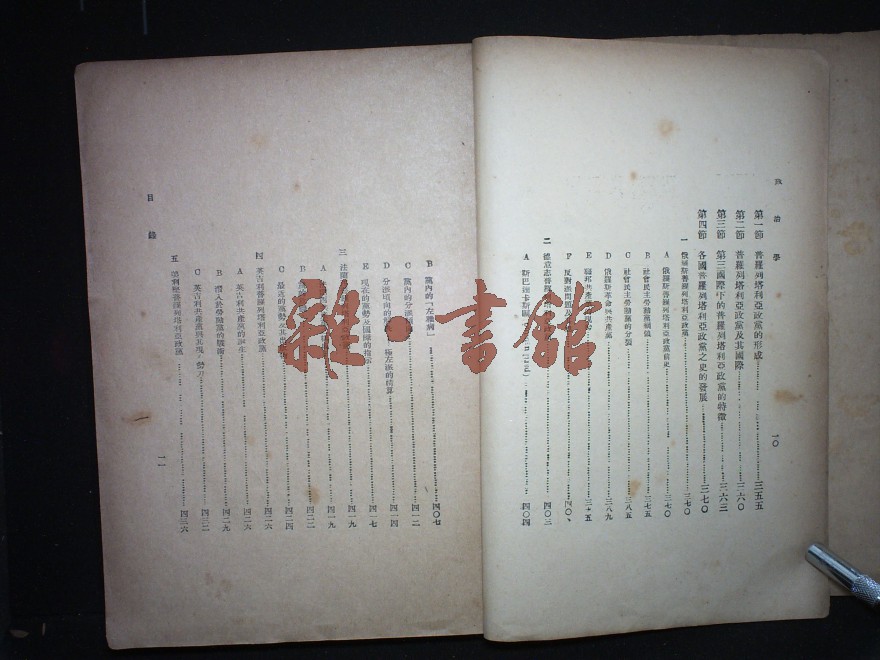 政治學
第一節 普羅列塔利亞政黨的形成……三五五
第二節 普羅列塔利亞政黨及其國際……三六〇
第三節 第三國際下的普羅列塔利亞政黨的特徵……三六三
第四節 各國普羅列塔利亞政黨之史的發展……三七〇
一 俄羅斯普羅列塔利亞政黨……三七〇
A 俄羅斯普羅列塔利亞政黨前史……三七〇
B 社會民主勞動黨……三七五
C 社會民主勞動黨的分裂……三八五
D 俄羅斯革命與共產黨……三八九
E 聯邦共產黨……三九五
F 反對派問題及……四〇
二 德意志普羅列……四〇三
A 斯巴達卡斯團……四〇四
一〇
B 黨內的「左雅病」……四〇七
C 黨內的分派……四一二
D 分派傾向的 極左派的清算……四一四
E 現在的黨勢及國際的指……四一七
三 法蘭……四一九
A……四一九
B……四二二
C 最近的黨勢及其……四二四
四 英吉利普羅列塔利亞政黨……四二六
A 英吉利共產黨的誕生……四二六
B 潛入於勞動黨的戰術……四二九
C 英吉利共產黨與其現勢力……四三二
五 普羅列塔利亞政黨……四三六
目錄
一一
雜·書館